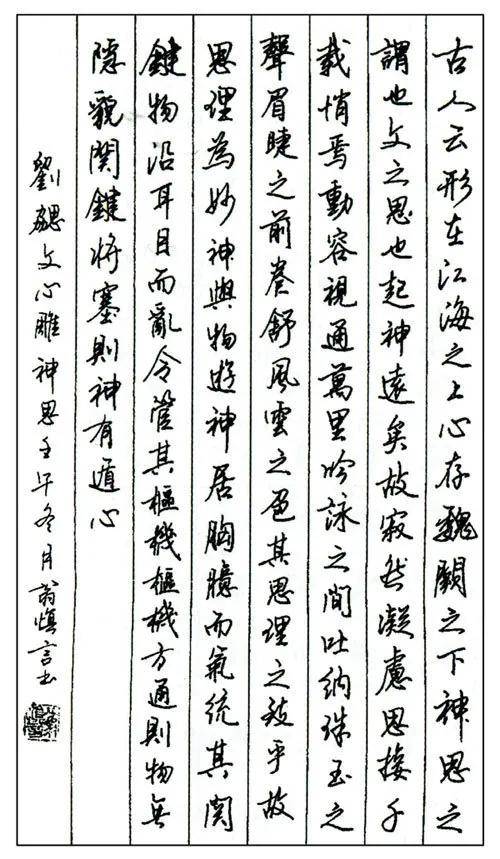 古人云形在江海之上心存魏闕之下神思之
謂也文之思也起神遠矣故寂然凝慮思接千
載悄焉動容視通萬里吟詠之間吐納珠玉之
聲眉睫之前卷舒風雲之色其思理之致乎故
思理為妙神與物遊神居胸臆而氣統其関
鍵物沿耳目而亂令管其樞機樞機方通則物無
隱貌関鍵将塞則神有遁心
劉勰文心雕神思壬午冬月翁慎言书